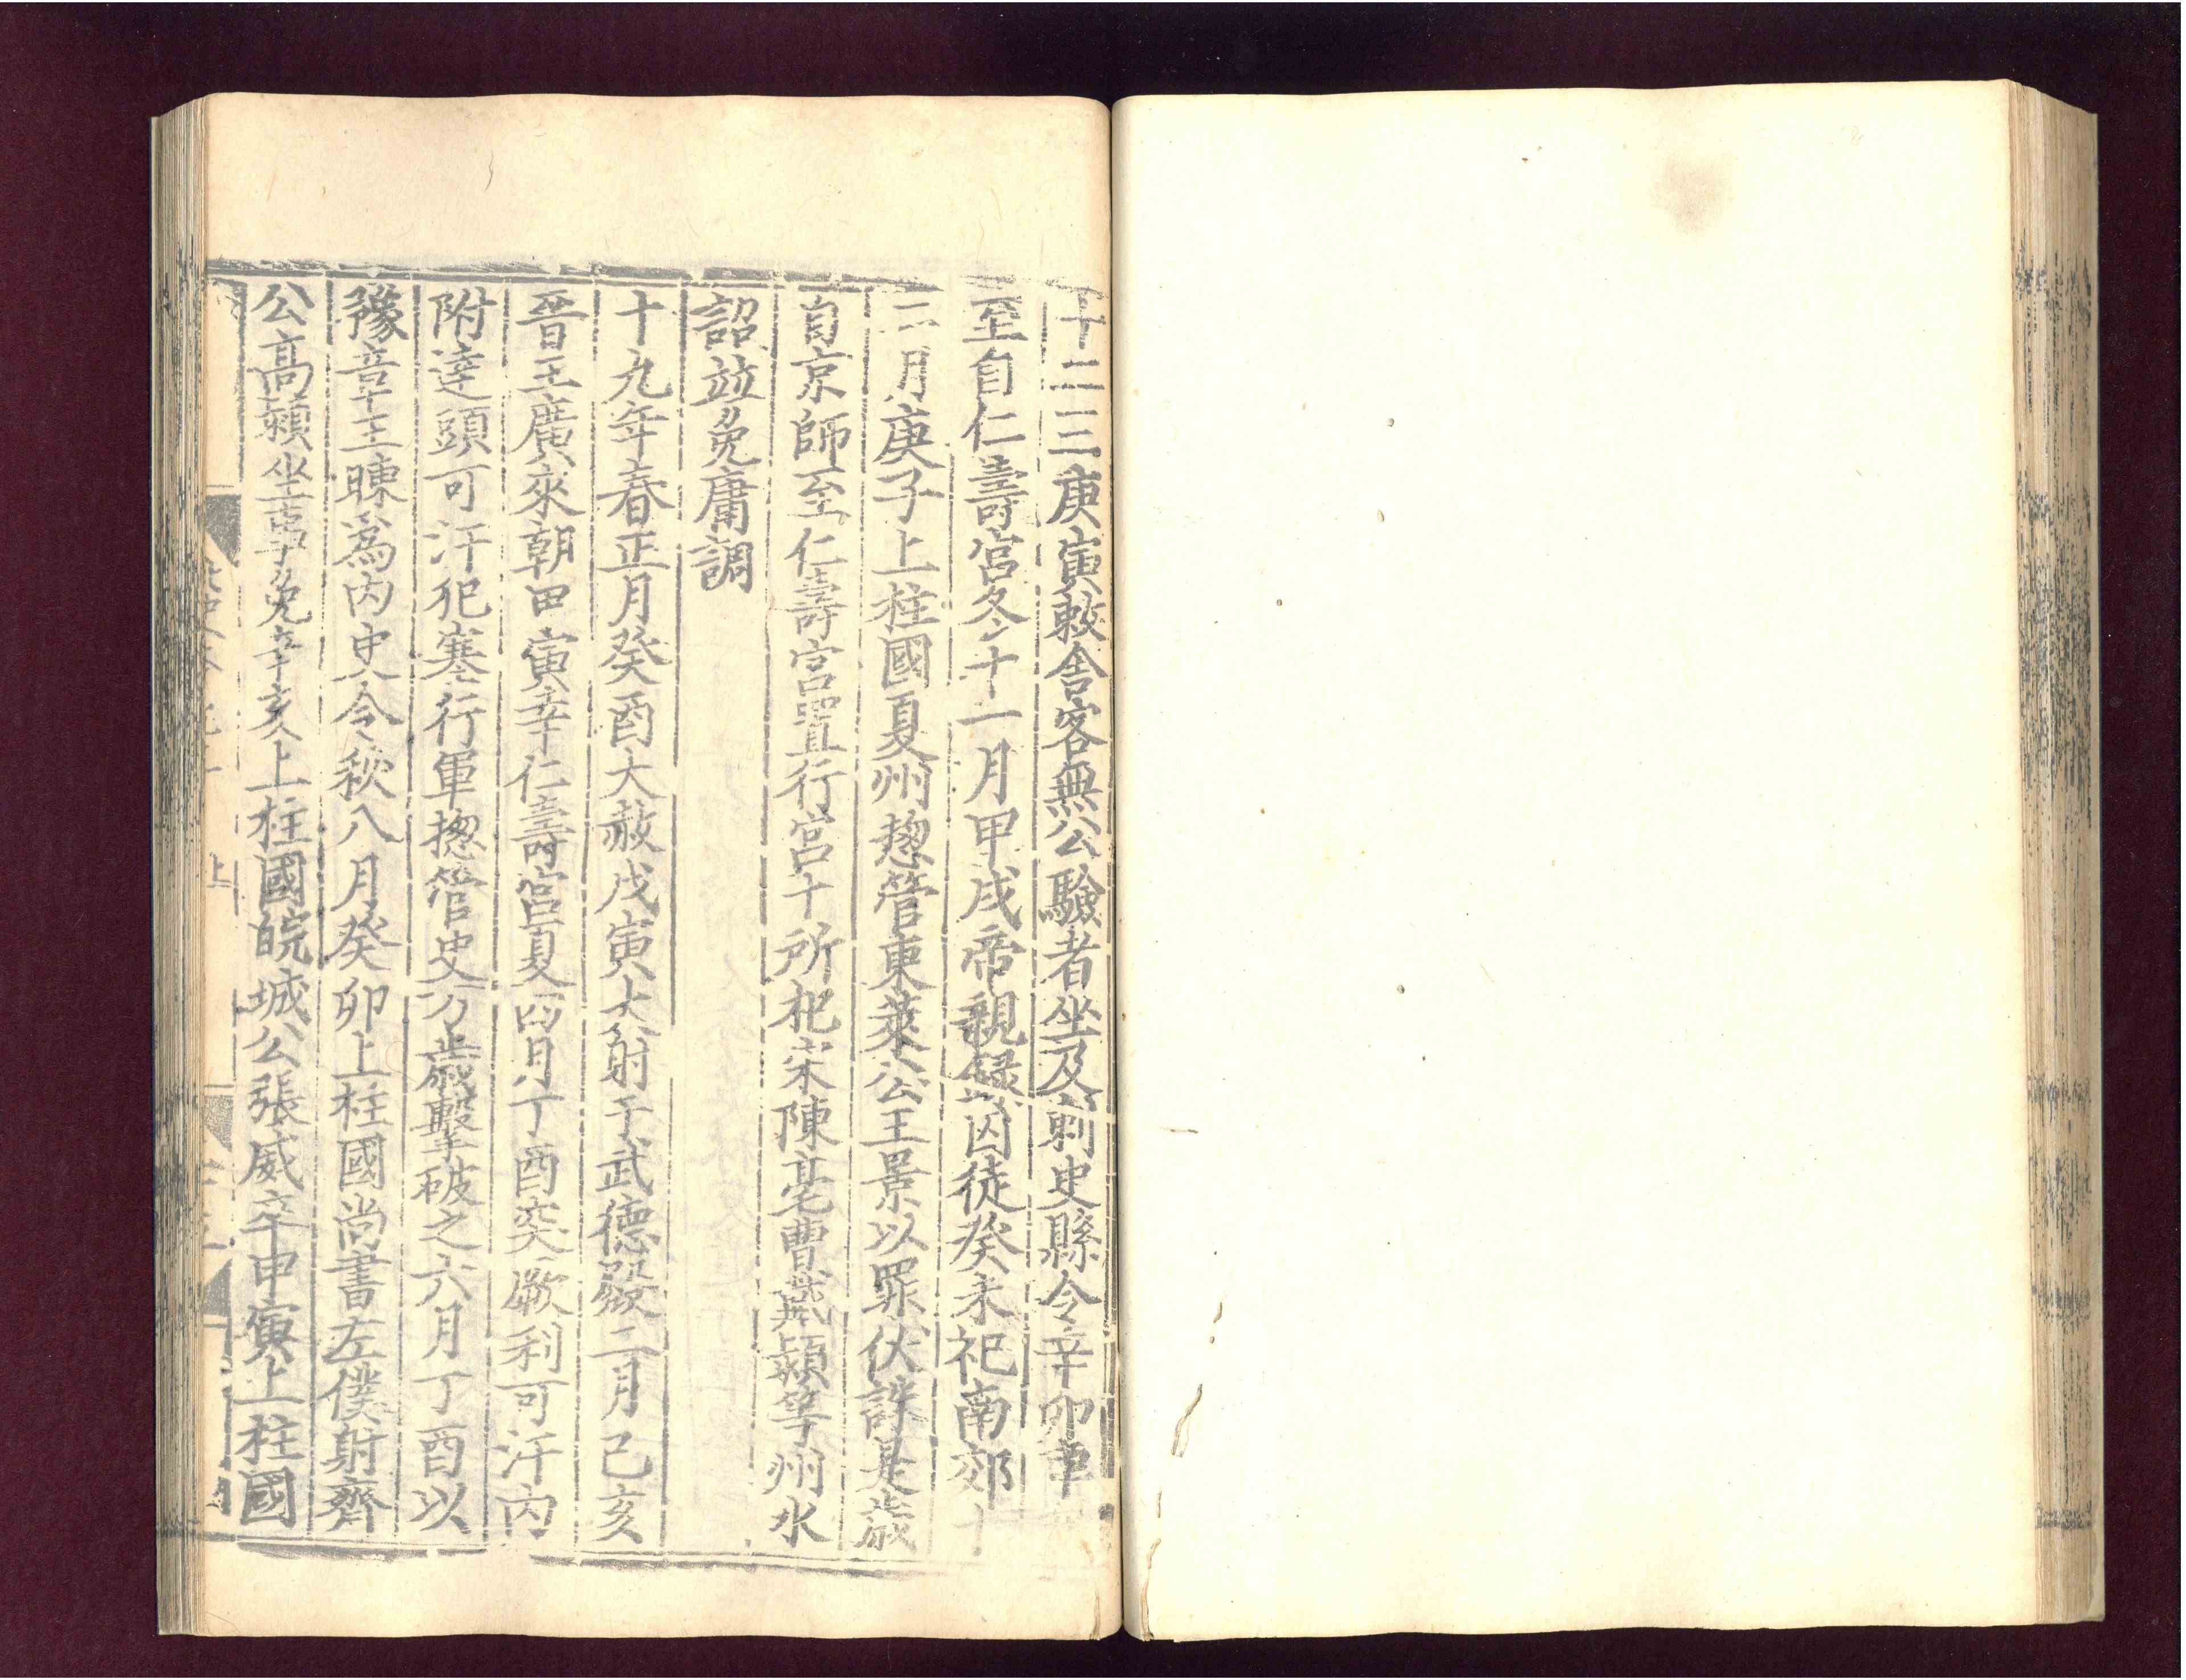 十二三庚寅敕舍客無公驗者坐及刺史縣令辛卯車
至自仁壽宮冬十一月甲戌帝親録囚徒癸未祀南郊十
二月庚子上柱國夏州揔管東萊公王景以罪伏誅是歲
自京師至仁壽宮置行宮十所杞宋陳亳曹戴潁等州水
詔竝免庸調
十九年春正月癸酉大赦戊寅大射于武德殿二月己亥
晉王廣來朝甲寅幸仁壽宮夏四月丁酉突厥利可汗內
附達頭可汗犯塞行軍揔管史万歲擊破之六月丁酉以
豫章王暕爲內史令秋八月癸卯上柱國尚書左僕射齊
公高熲坐事免辛亥上柱國皖城公張威卒甲寅上柱國